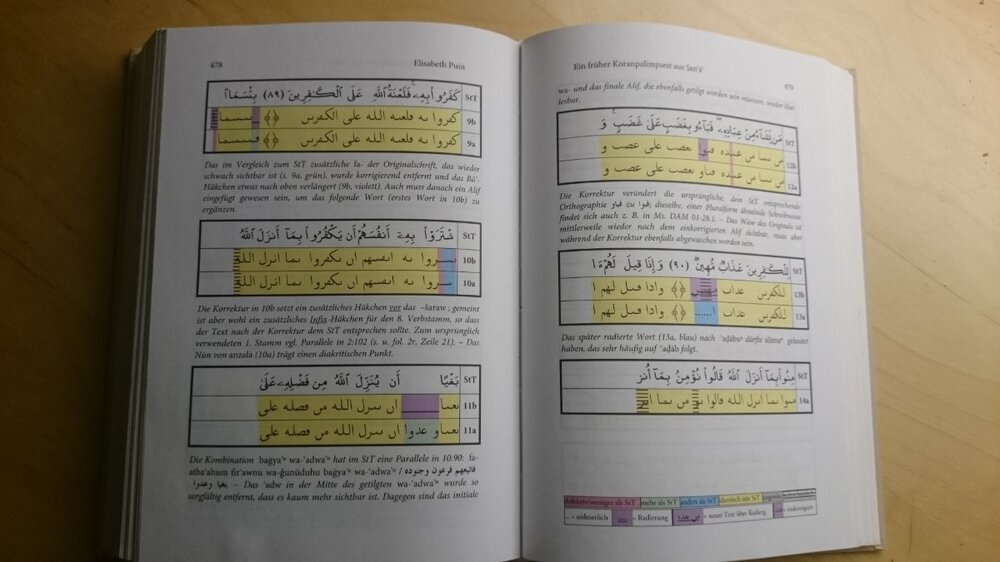 478
Elisabeth Puin
كَفَرُوا۟ بِهِۦ فَلَعْنَةُ ٱللَّهِ عَلَى ٱلْكَٰفِرِينَ (٨٩) بِئْسَمَا
StT
9b
9a
Das im Vergleich zum StT zusätzliche fa- der Originalschrift, das wieder
schwach sichtbar ist (s. 9a, grün), wurde korrigierend entfernt und das Bāʾ-
Häkchen etwas nach oben verlängert (9b, violett). Auch muss danach ein Alif
eingefügt gewesen sein, um das folgende Wort (erstes Wort in 10b) zu
ergänzen.
ٱشْتَرَوْا۟ بِهِۦٓ أَنفُسَهُمْ أَن يَكْفُرُوا۟ بِمَآ أَنزَلَ ٱللَّهُ
StT
10b
10a
Die Korrektur in 10b setzt ein zusätzliches Häkchen vor das -šaraw; gemeint
ist aber wohl ein zusätzliches Infix-Häkchen für den 8. Verbstamm, so dass
der Text nach der Korrektur dem StT entsprechen sollte. Zum ursprünglich
verwendeten 1. Stamm vgl. Parallele in 2:102 (s. u. fol. 2r, Zeile 21). – Das
Nūn von anzala (10a) trägt einen diakritischen Punkt.
بَغْيًا أَن يُنَزِّلَ ٱللَّهُ مِن فَضْلِهِۦ عَلَىٰ
StT
11b
11a
Die Kombination baġyaⁿ wa-ʿadwaⁿ hat im StT eine Parallele in 10:90: fa-
atbaʿahum firʿawnu wa-ǧunūduhu baġyaⁿ wa-ʿadwaⁿ / فاتبعهم فرعون وجنوده
بغيا وعدوا. – Das ʿadw in der Mitte des getilgten wa-ʿadwaⁿ wurde so
sorgfältig entfernt, dass es kaum mehr sichtbar ist. Dagegen sind das initiale
Ein früher Koranpalimpsest aus Ṣanʿāʾ
479
wa- und das finale Alif, die ebenfalls getilgt worden sein müssen, wieder klar
lesbar.
مَن يَشَآءُ مِنْ عِبَادِهِۦ فَبَآءُو بِغَضَبٍ عَلَىٰ غَضَبٍ وَ
StT
12b
12a
Die Korrektur verändert die ursprüngliche, dem StT entsprechende
Orthographie فباو zu فبوا; dieselbe, einer Pluralform ähnelnde Schreibweise
findet sich auch z. B. in Ms. DAM 01-28.1. – Das Wāw des Originals ist
mittlerweile wieder nach dem einkorrigierten Alif sichtbar, muss aber
während der Korrektur ebenfalls abgewaschen worden sein.
لِلْكَٰفِرِينَ عَذَابٌ مُّهِينٌ (٩٠) وَإِذَا قِيلَ لَهُمْ ءَا
StT
13b
13a
Das später radierte Wort (13a, blau) nach ʿaḏābuⁿ dürfte alīmuⁿ gelautet
haben, das sehr häufig auf ʿaḏāb folgt.
مِنُوا۟ بِمَآ أَنزَلَ ٱللَّهُ قَالُوا۟ نُؤْمِنُ بِمَآ أُنزِ
StT
14a
defektiv/weniger als StT mehr als StT anders als StT identisch mit StT
... = unleserlich = Radierung = neuer Text über Radierg. = einkorrigiert